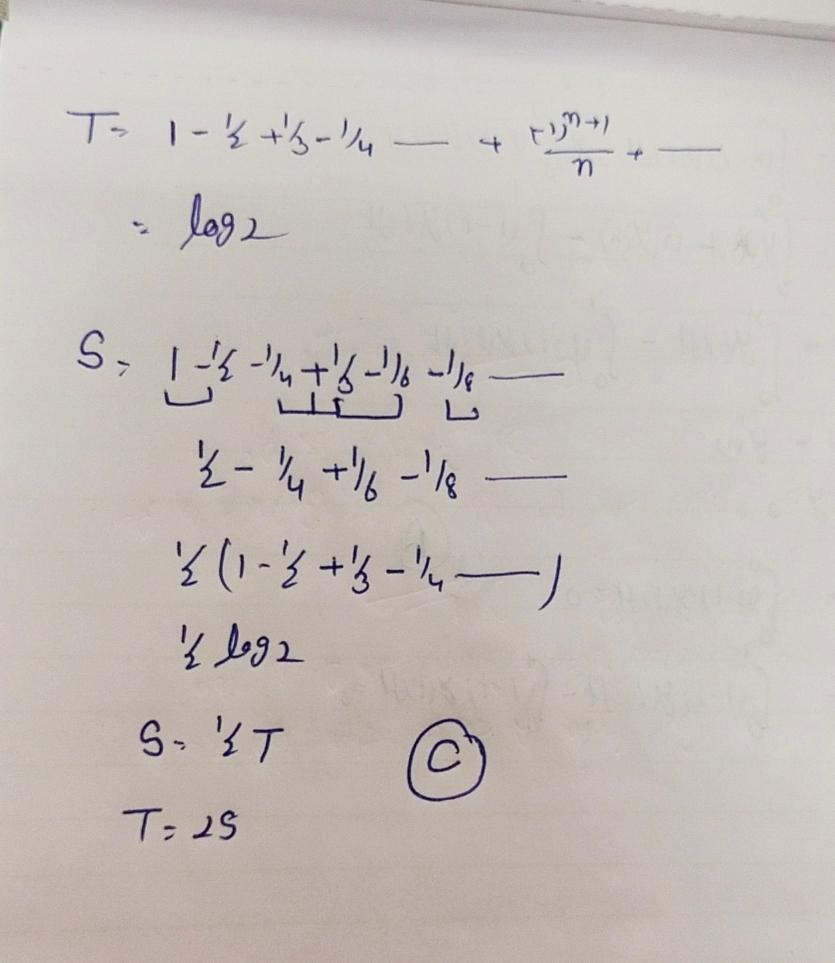 T = 1 - 1/2 + 1/3 - 1/4 — + (-1)^{n+1}/n + —
= log 2
S = 1 - 1/2 - 1/4 + 1/3 - 1/6 - 1/8 —
1/2 - 1/4 + 1/6 - 1/8 —
1/2 (1 - 1/2 + 1/3 - 1/4 — )
1/2 log 2
S = 1/2 T
C
T = 2S